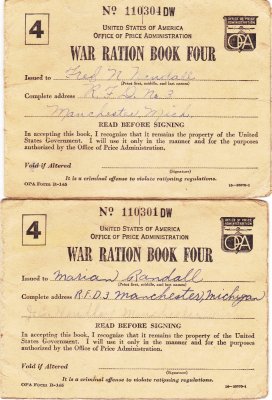 Nº 110304 DW
4
UNITED STATES OF AMERICA
OFFICE OF PRICE ADMINISTRATION
OFFICE OF PRICE ADMINISTRATION
OPA
WAR RATION BOOK FOUR
Issued to Fred N. Randall
(Print first, middle, and last names)
Complete address R. F. D. No 3
Manchester, Mich.
READ BEFORE SIGNING
In accepting this book, I recognize that it remains the property of the United
States Government. I will use it only in the manner and for the purposes
authorized by the Office of Price Administration.
Void if Altered
(Signature)
It is a criminal offense to violate rationing regulations.
OPA Form R-145
Nº 110301 DW
4
UNITED STATES OF AMERICA
OFFICE OF PRICE ADMINISTRATION
OFFICE OF PRICE ADMINISTRATION
OPA
WAR RATION BOOK FOUR
Issued to Marian Randall
(Print first, middle, and last names)
Complete address R.F.D.3 Manchester, Michigan
READ BEFORE SIGNING
In accepting this book, I recognize that it remains the property of the United
States Government. I will use it only in the manner and for the purposes
authorized by the Office of Price Administration.
Void if Altered
(Signature)
It is a criminal offense to violate rationing regulations.
OPA Form R-145